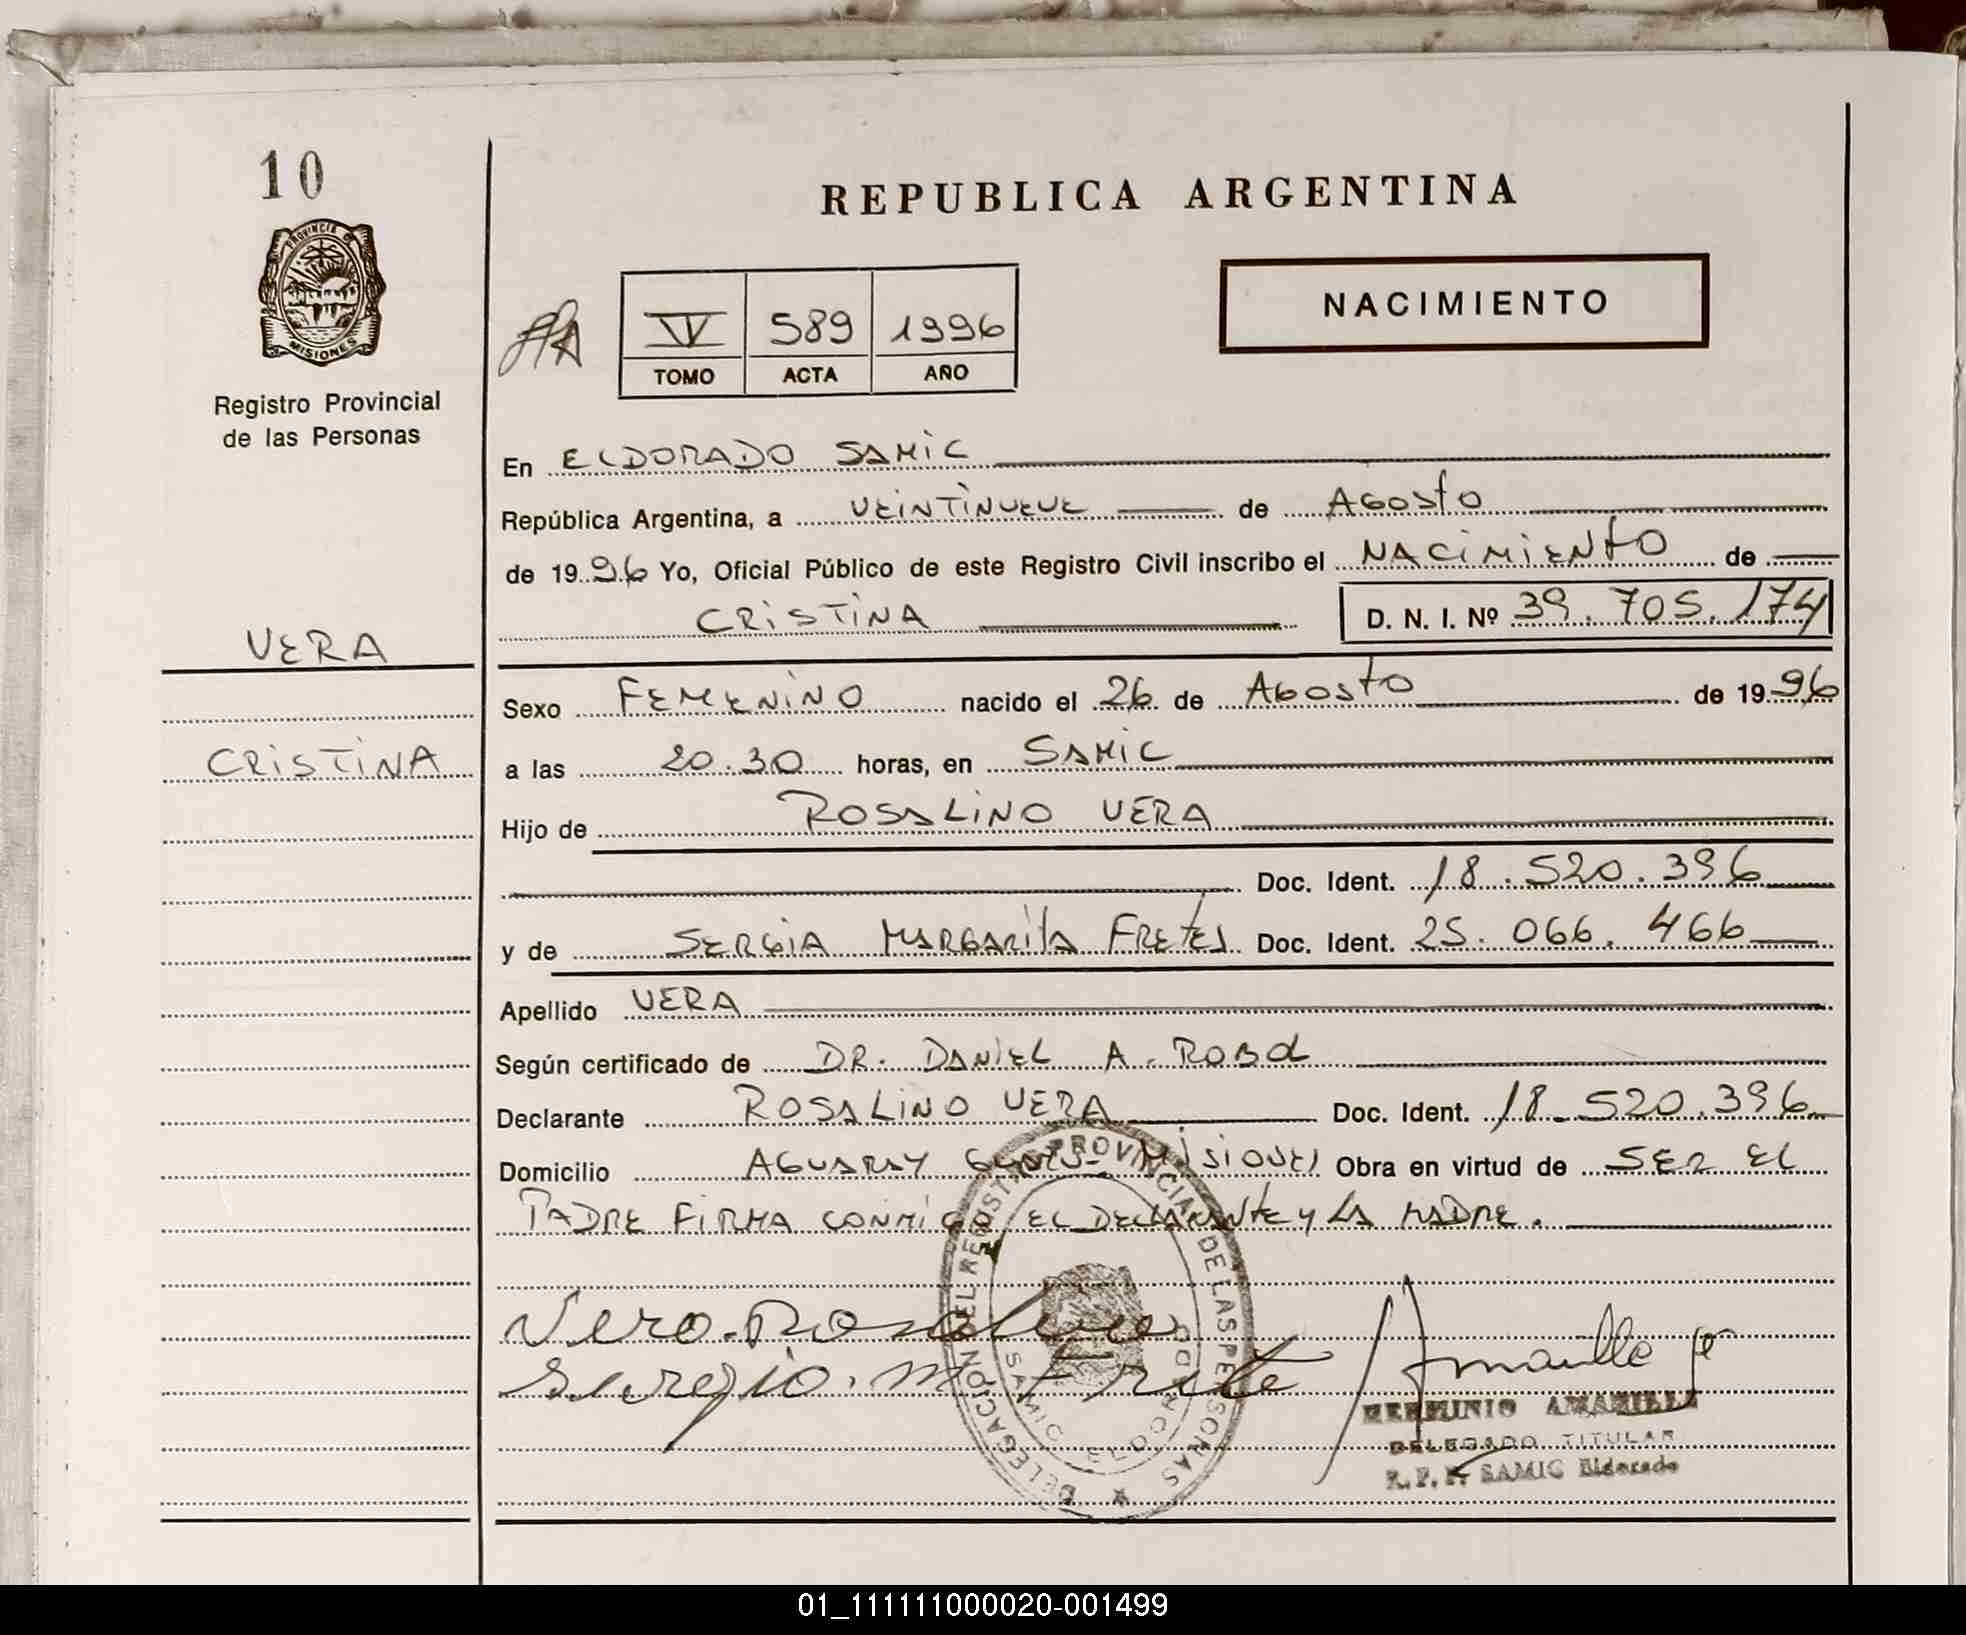 10
PROVINCIA DE
MISIONES
Registro Provincial
de las Personas
REPUBLICA ARGENTINA
NACIMIENTO
IV 589 1996
TOMO ACTA AÑO
En ELDORADO SAMIC
República Argentina, a VEINTINUEVE de AGOSTO
de 1996 Yo, Oficial Público de este Registro Civil inscribo el NACIMIENTO de
CRISTINA D. N. I. Nº 39.705.174
VERA
Sexo FEMENINO nacido el 26 de AGOSTO de 1996
CRISTINA
a las 20.30 horas, en SAMIC
Hijo de ROSALINO VERA
Doc. Ident. 18.520.396
y de SERGIA MARGARITA FRETES Doc. Ident. 25.066.466
Apellido VERA
Según certificado de DR. DANIEL A.
Declarante ROSALINO VERA Doc. Ident. 18.520.396
Domicilio AGUARAY MISIONES Obra en virtud de SER EL
PADRE FIRMA CONMIGO EL DECLARANTE Y LA MADRE.
DELEGACION DEL REGISTRO PROVINCIAL DE LAS PERSONAS
SAMIC ELDORADO
Vera Rosalino
Sergia. M Frete
DELEGADO TITULAR
R. P. P. SAMIC Eldorado
01_111111000020-001499